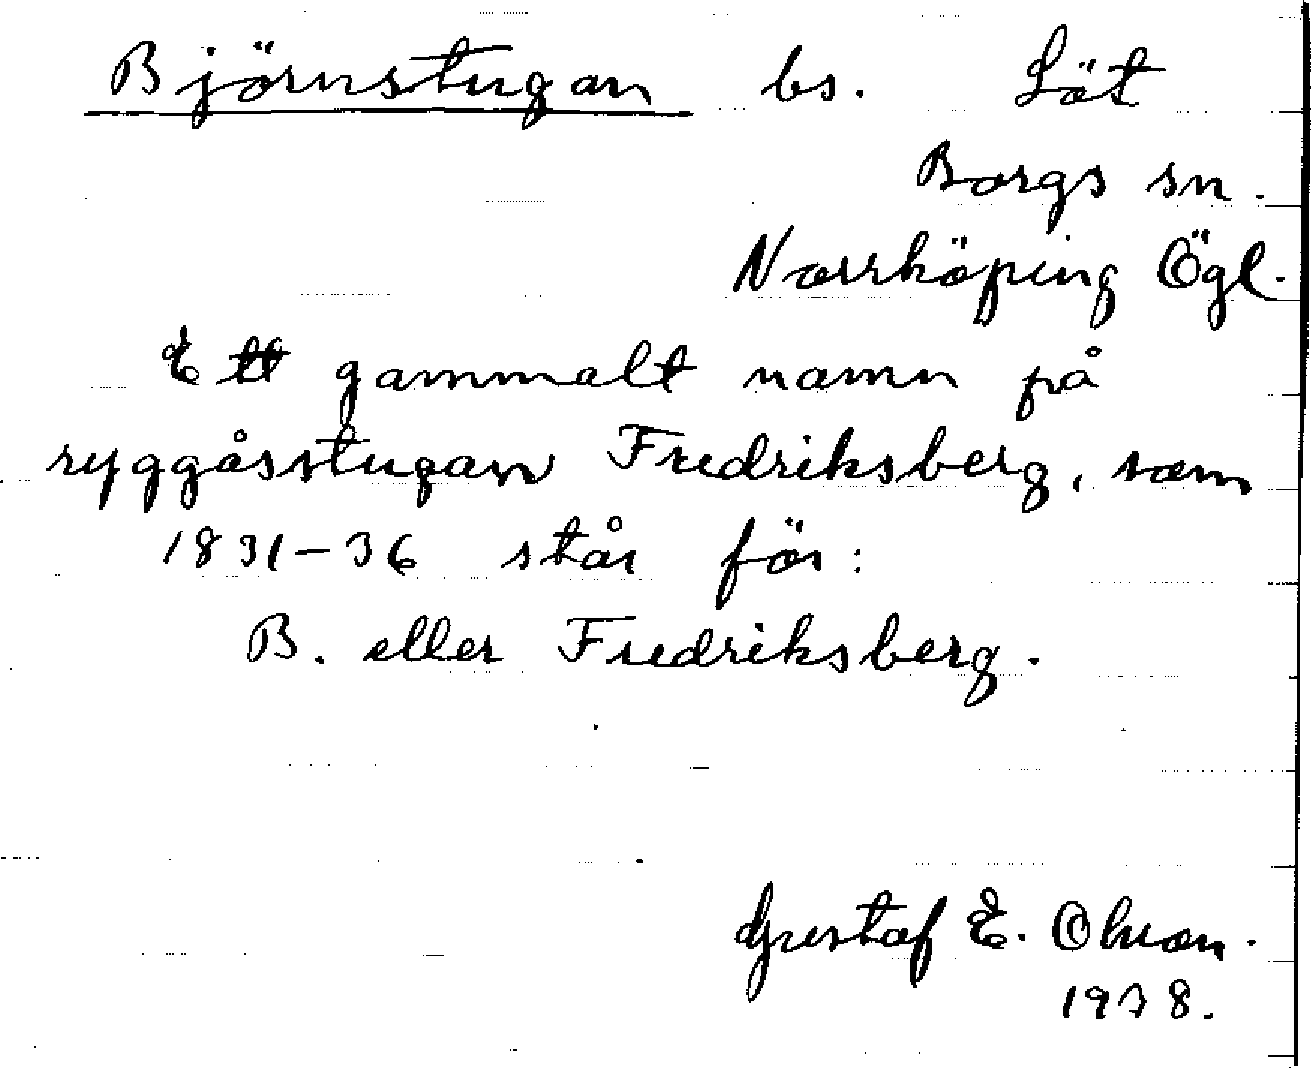 Björnstugan bs. Löt
Borgs sn.
Norrköping Ögl.
Ett gammalt namn på
ryggåsstugan Fredriksberg, som
1831-36 står för:
B. eller Fredriksberg.
Gustaf E. Olsson.
1938.